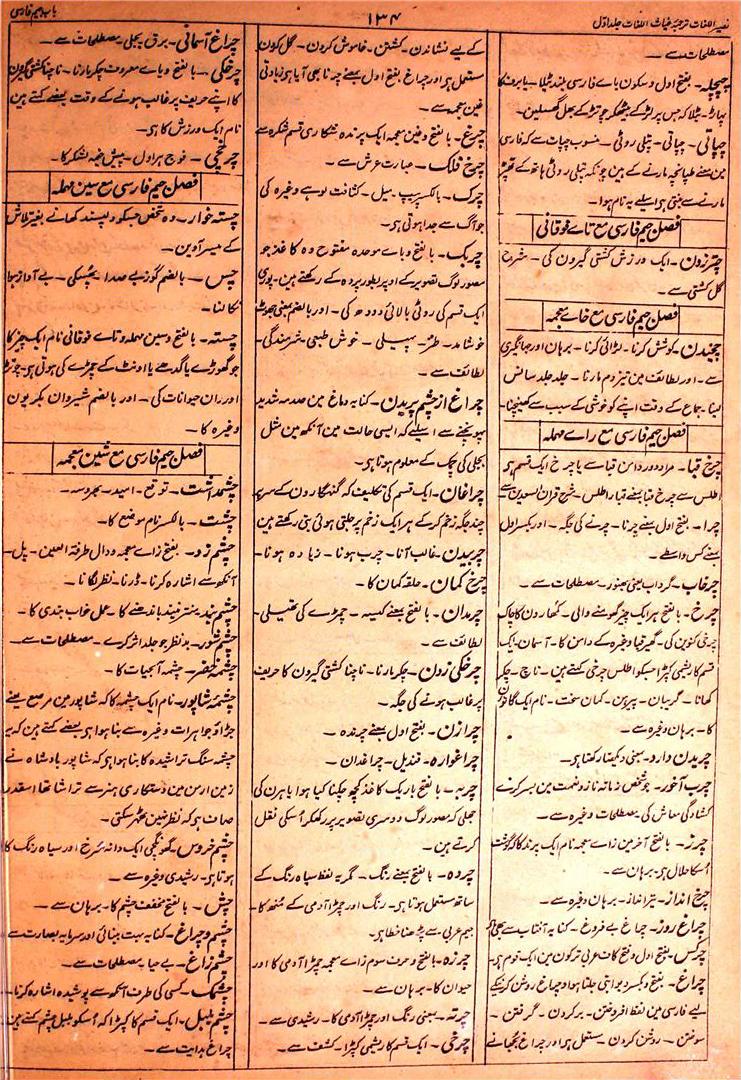 باب جیم فارسی
۱۳۴
نصیر اللغات ترجمۂ غیاث اللغات جلد اول
مصطلحات سے۔
چچلہ۔ بفتح اول و سکون بائے فارسی بلند ٹیلا۔ یا برف کا
پہاڑ۔ ٹیلا کہ جس پر لڑکے بیٹھکر چوتڑ کے بھل گھسلین۔
چپاتی۔ چپاتی۔ پتلی روٹی۔ منسوب چپات سے کہ فارسی
مین بمعنے طپانچہ مارنے کے ہین چونکہ پتلی روٹی ہاتھ کے تھپڑ
مارنے سے بنتی ہی اسلیے یہ نام ہوا۔
فصل جیم فارسی مع تاے فوقانی
چترزدن۔ ایک ورزش کشتی گیرون کی۔ شرح
گل کشتی سے۔
فصل جیم فارسی مع خاے معجمہ
چخیدن۔ کوشش کرنا۔ لڑائی کرنا۔ برہان اور جہانگیری
سے۔ اور لطائف مین تیز دم مارنا۔ جلد جلد سانس
لینا۔ جماع کے وقت اپنے کو خوشی کے سبب سے کھینچنا۔
فصل جیم فارسی مع راے مہملہ
چرخ قبا۔ مراد دور دامن قبا سے یا چرخ ایک قسم ہی
اطلس سے چرخ قبا بمعنے قبار اطلس۔ شرح قران السعدین سے
چرا۔ بفتح اول بمعنے چرنا۔ چرنے کی جگہ۔ اور بکسر اول
بمعنے کس واسطے۔
چرغاب۔ گرداب یعنی بھنور۔ مصطلحات سے۔
چرخ۔ بالفتح ہر ایک چیز گھومنے والی۔ کمھارون کا چاک
چرخی کنوین کی۔ گھیر قبا وغیرہ کے دامن کا۔ آسمان۔ ایک
قسم کا ریشمی کپڑا جسکو اطلس چرخی کہتے ہین۔ ناچ۔ چکر
کھانا۔ گریبان۔ پیرہن۔ کمان سخت۔ نام ایک گانون
کا۔ برہان وغیرہ سے۔
چربدن دارد۔ یعنی دیکھنا رکھتا ہی۔
چرب آخور۔ جو شخص زمانہ ناز و نعمت مین بسر کرے
کشادگی معاش کی مصطلحات وغیرہ سے۔
چرز۔ بالفتح آخر مین زاے معجمہ نام ایک پرند کا گوشت
اُسکا حلال ہی۔ برہان سے۔
چرخ انداز۔ تیر انداز۔ برہان وغیرہ سے۔
چراغ روز۔ چراغ بے فروغ۔ کنایہ آفتاب سے بھی ہی
چرکس۔ بفتح اول و فتح کاف عربی ترکون مین ایک قوم ہی۔
چراغ۔ بفتح و بکسر دیوا بتی جلتا ہوا و چراغ روشن کرنیکے
لیے فارسی مین لفظ افروختن۔ برکردن۔ گرفتن۔
سوختن۔ روشن کردن مستعمل ہی اور چراغ بجھانے
کے لیے نشاندن۔ کشتن۔ خاموش کردن۔ گل کردن
مستعمل ہی اور چراغ بفتح اول بمعنے چرنا بھی آیا ہی زیادتی
غین معجمہ سے۔
چرغ۔ بالفتح و غین معجمہ ایک پرندہ شکاری قسم شکرہ سے
چرخ فلک۔ عبارت عرش سے۔
چرک۔ بالکسر پیپ۔ میل۔ کثافت لوہے وغیرہ کی
جو آگ سے جدا ہوتی ہی۔
چربک۔ بالفتح و باے موحدہ مفتوح وہ کاغذ جو
مصور لوگ تصویر کے اوپر بطور پردہ کے رکھتے ہین۔ پوری
ایک قسم کی روٹی بالائی دودھ کی۔ اور بالضم بمعنی جھوٹ
خوشامد۔ طنز۔ پہیلی۔ خوش طبعی۔ شرمندگی۔
لطائف سے۔
چراغ از چشم پریدن۔ کنایہ دماغ مین صدمہ شدید
پہونچنے سے اسلیے کہ ایسی حالت مین آنکھ مین مثل
بجلی کی چمک کے معلوم ہوتا ہی۔
چراغان۔ ایک قسم کی تکلیف کہ گنہگارون کے سر پر
چند جگہ زخم کرکے ہر ایک زخم پر جلتی ہوئی بتی رکھتے ہین
چربیدن۔ غالب آنا۔ چرب ہونا۔ زیادہ ہونا۔
چرخ کمان۔ حلقہ کمان کا۔
چرمدان۔ بالفتح بمعنے کیسہ۔ چمڑے کی تھیلی۔
لطائف سے۔
چرخکی زدن۔ چکر مارنا۔ ناچنا کشتی گیرون کا حریف
پر غالب ہونے کی جگہ۔
چرازن۔ بفتح اول بمعنے چرندہ۔
چراغوارہ۔ قندیل۔ چراغدان۔
چربہ۔ بالفتح باریک کاغذ کچھ چکنا کیا ہوا یا ہرن کی
جھلی کہ مصور لوگ دوسری تصویر پر رکھکر اُسکی نقل
کرتے ہین۔
چردہ۔ بالفتح بمعنے رنگ۔ مگر یہ لفظ سیاہ رنگ کے
ساتھ مستعمل ہوتا ہی۔ رنگ اور چمڑا آدمی کے مُنھ کا۔
جیم عربی سے پڑھنا خطا ہی۔
چرزہ۔ بالفتح و حرف سوم زاے معجمہ چمڑا آدمی کا اور
حیوان کا۔ برہان سے۔
چرتہ۔ بمعنی رنگ اور چمڑا آدمی کا۔ رشیدی سے۔
چرخی۔ ایک قسم کا ریشمی کپڑا۔ کشف سے۔
چراغ آسمانی۔ برق بجلی مصطلحات سے۔
چرخکی۔ بالفتح و یاے معروف چکر مارنا۔ ناچنا کشتی گیرون
کا اپنے حریف پر غالب ہونے کے وقت بعضے کہتے ہین
نام ایک ورزش کا ہی۔
چرخچی۔ فوج ہراول۔ پیش خیمہ لشکر کا۔
فصل جیم فارسی مع سین مہملہ
چستہ خوار۔ وہ شخص جسکو دلپسند کھانے بغیر تلاش
کے میسر آوین۔
چس۔ بالضم گوز بے صدا۔ پھسکی۔ بے آواز ہوا
نکالنا۔
چستہ۔ بالفتح و سین مہملہ و تاے فوقانی نام ایک چیز کا
جو گھوڑے یا گدھے یا اونٹ کے چمڑے کی ہوتی ہی۔ چوتڑ
اور ران حیوانات کی۔ اور بالضم شیردان بکریون
وغیرہ کا۔
فصل جیم فارسی مع شین معجمہ
چشمداشت۔ توقع۔ امید۔ بھروسہ۔
چشت۔ بالکسر نام موضع کا۔
چشم زد۔ بفتح زاے معجمہ و دال طرفۃ العین۔ پل۔
آنکھ سے اشارہ کرنا۔ ڈرنا۔ نظر لگانا۔
چشم بند۔ منتر نیند باندھنے کا۔ عمل خواب بندی کا۔
چشم شور۔ بدنظر جو جلد اثر کرے۔ مصطلحات سے۔
چشمۂ خضر۔ چشمہ آبحیات کا۔
چشمۂ شاپور۔ نام ایک چشمہ کا کہ شاپور مین مرصع یعنے
جڑاؤ جواہرات وغیرہ سے بنا ہوا ہی بعضے کہتے ہین کہ یہ
چشمہ سنگ تراشیدہ کا بنا ہوا ہی کہ شاپور بادشاہ نے
زمین ارمن مین دستکاری ہنر سے تراشا تھا اسقدر
صاف ہی کہ نظر نہین ٹھہر سکتی۔
چشم خروس۔ گھونگچی ایک دانہ سرخ اور سیاہ رنگ کا
ہوتا ہی۔ رشیدی وغیرہ سے۔
چش۔ بالفتح مخفف چشم کا۔ برہان سے۔
چشم و چراغ۔ کنایہ بیت بنائی اور سرمایہ بصارت سے
چشم زاغ۔ بے حیا۔ مصطلحات سے۔
چشمک۔ کسی کی طرف آنکھ سے پوشیدہ اشارہ کرنا۔
چشم بلبل۔ ایک قسم کا کپڑا کہ اُسکو بلبل چشم کہتے ہین
چراغ ہدایت سے۔